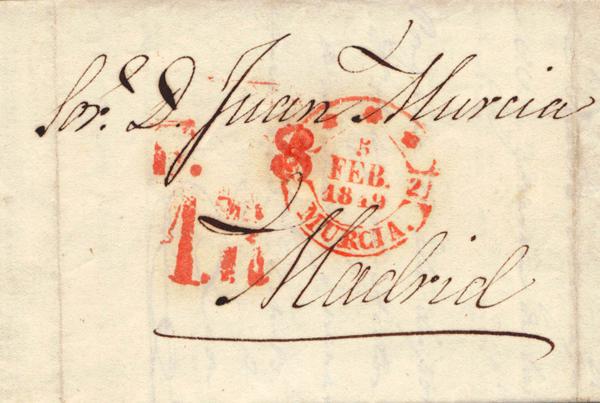 Sor. D. Juan Murcia
8
5
FEB.
1849
21
MURCIA.
Madrid